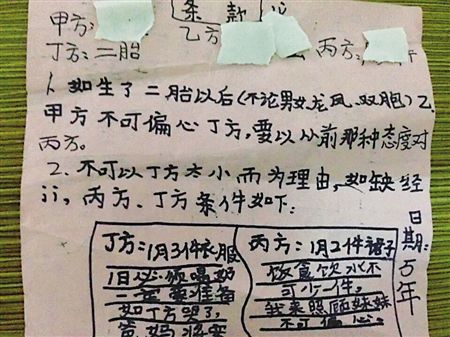 条款
甲方:
乙方
丙方:
丁方:二胎
1、如生了二胎以后(不论男女、龙凤、双胞)乙
甲方不可偏心丁方,要以从前那种态度对
丙方。
2、不可以丁方太小而为理由,如缺经
济,丙方、丁方条件如下:
丁方:1月3件衣服
1日必须喝奶
一定要准备
如丁方哭了,
爸、妈将要
丙方:1月2件裙子
饭食饮水不
可少一件。
我来照顾妹妹
不可偏心。
日期:5年